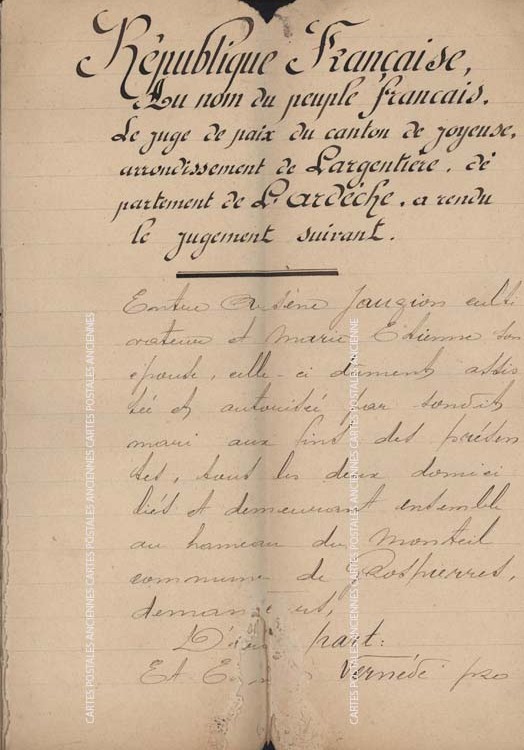 République Française,
Au nom du peuple français.
Le juge de paix du canton de Joyeuse,
arrondissement de Largentière, dé
partement de L'ardèche, a rendu
le jugement suivant.
Entre Arsène Jauzion culti
vateur et Marie Etienne son
épouse, celle-ci dûment assis
tée et autorisée par sondit
mari aux fins des présen
tes, tous les deux domici
liés et demeurant ensemble
au hameau du Monteil
commune de Rospierres,
D'une part:
Et Vernède pro
CARTES POSTALES ANCIENNES CARTES POSTALES ANCIENNES CARTES POSTALES ANCIENNES
CARTES POSTALES ANCIENNES CARTES POSTALES ANCIENNES CARTES POSTALES ANCIENNES